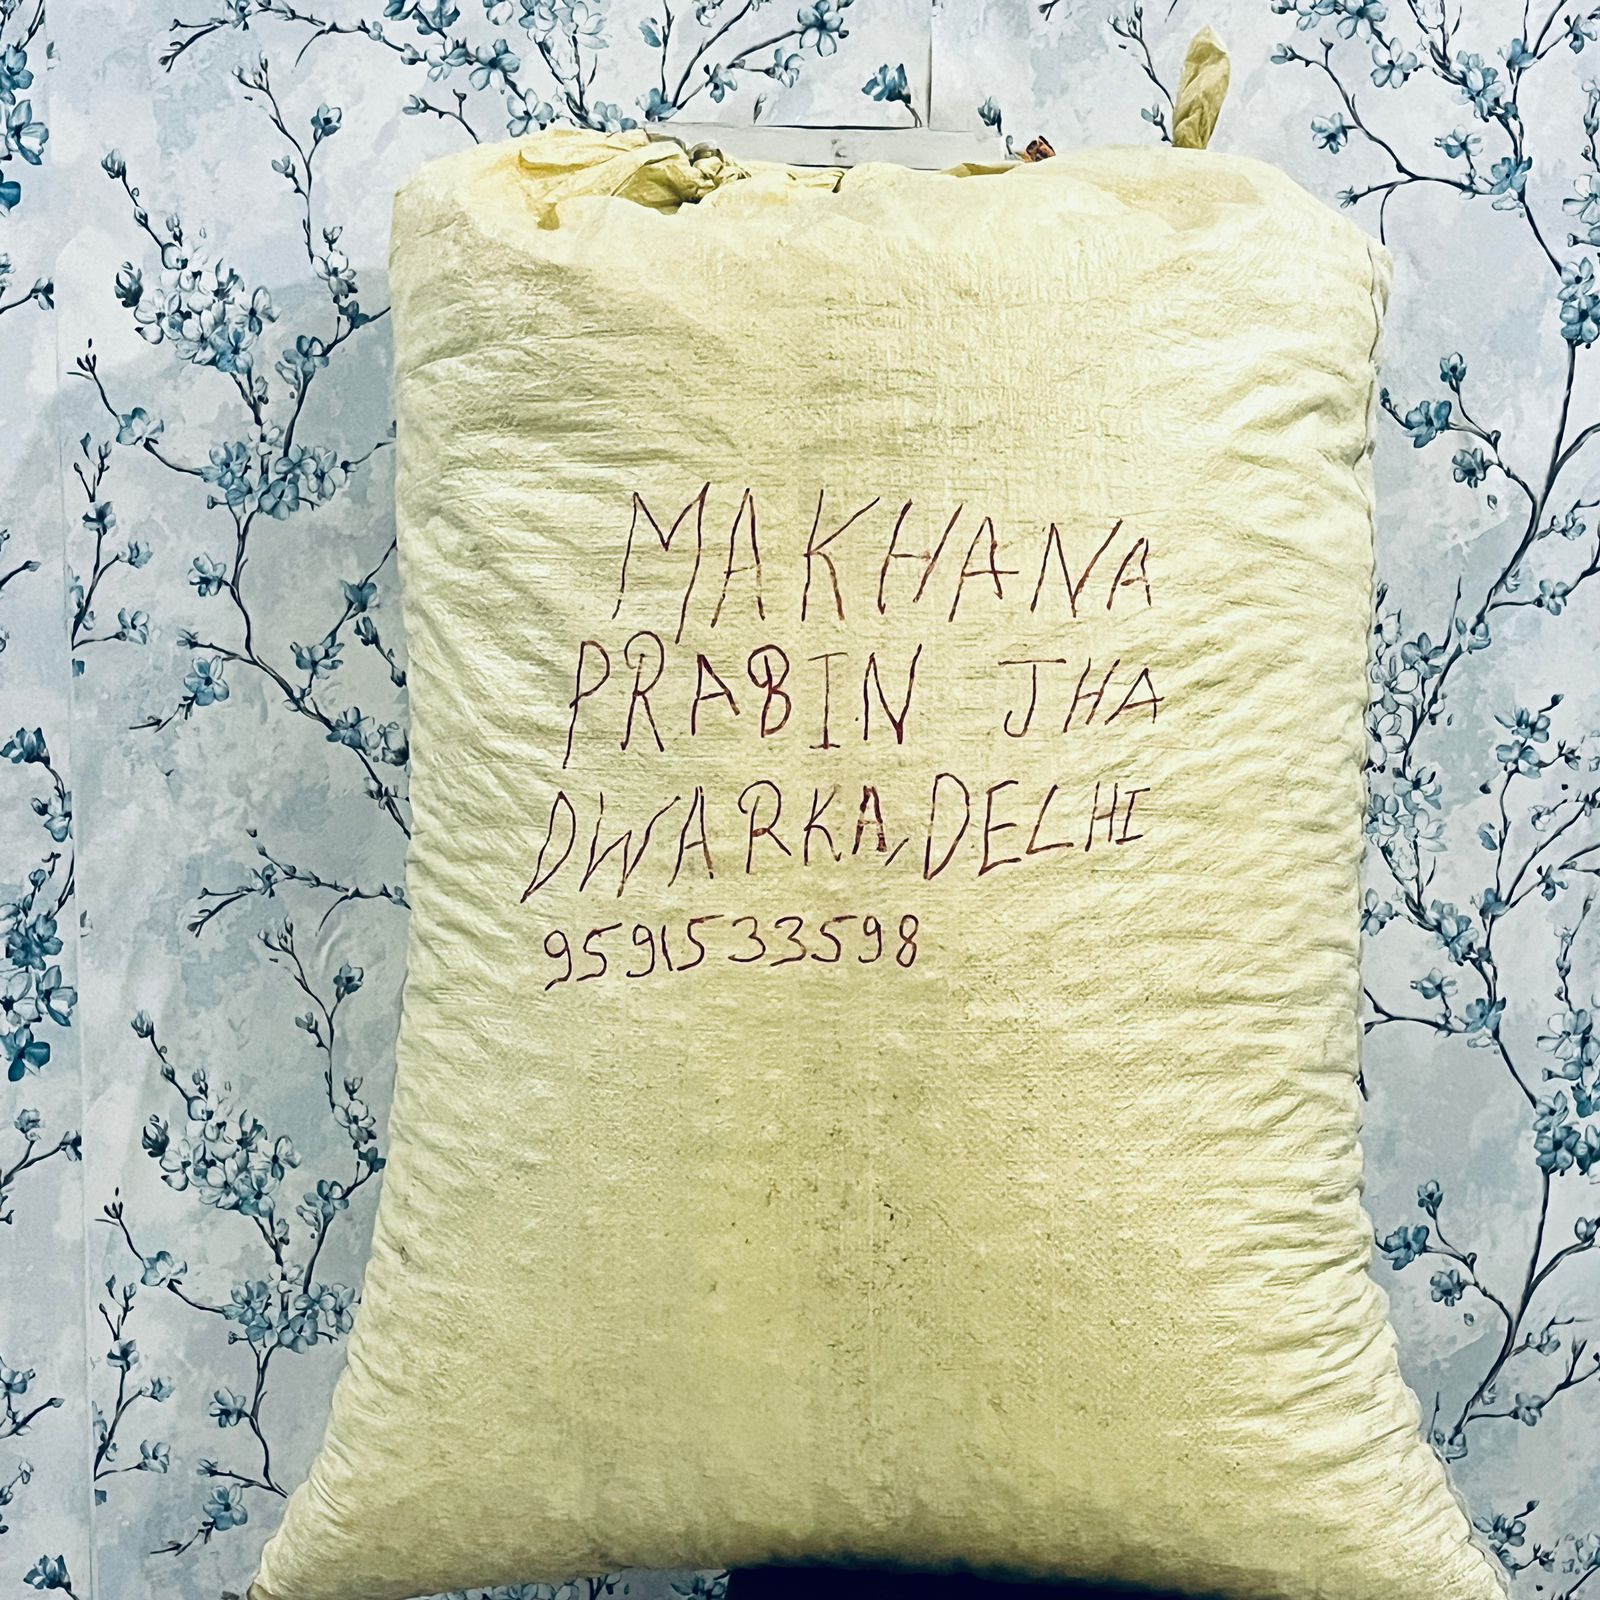 MAKHANA
PRABIN JHA
DWARKA, DELHI
9591533598